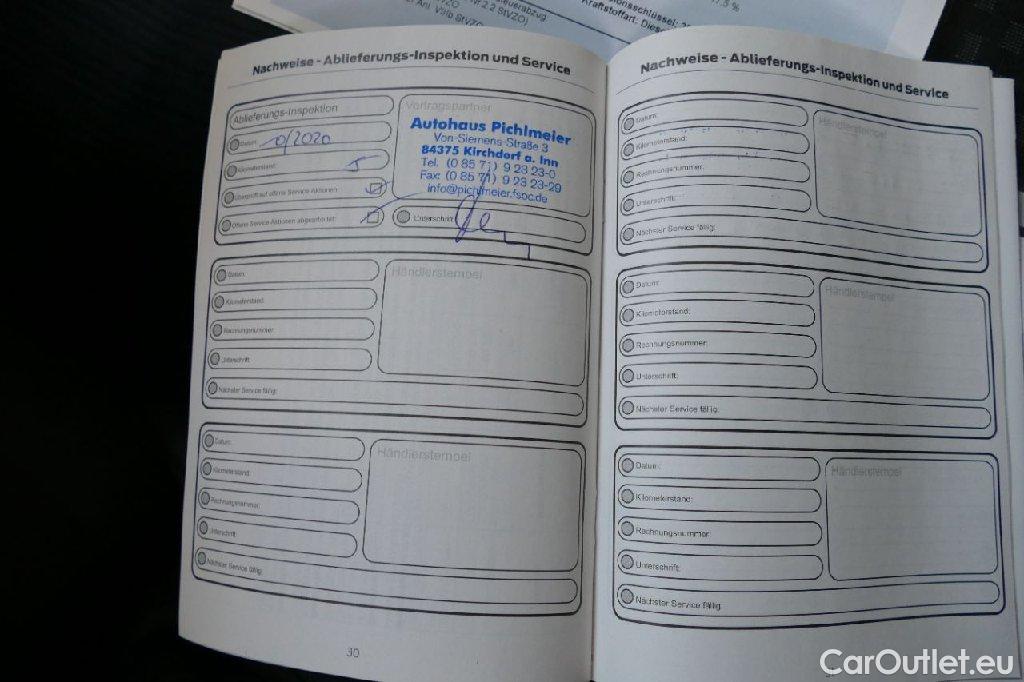 Nachweise - Ablieferungs-Inspektion und Service
Ablieferungs-Inspektion
Datum:
Kilometerstand:
5
Überprüft auf offene Service Aktionen:
Offene Service Aktionen abgearbeitet:
Vertragspartner
Autohaus Pichlmeier
Von-Siemens-Straße 3
84375 Kirchdorf a. Inn
Tel. (0 85 71) 9 23 23-0
Fax: (0 85 71) 9 23 23-29
info@pichlmeier.fsoc.de
Unterschrift:
Datum:
Kilometerstand:
Rechnungsnummer:
Unterschrift:
Nächster Service fällig:
Händlerstempel
Datum:
Kilometerstand:
Rechnungsnummer:
Unterschrift:
Nächster Service fällig:
Händlerstempel
30
Nachweise - Ablieferungs-Inspektion und Service
Datum:
Kilometerstand:
Rechnungsnummer:
Unterschrift:
Nächster Service fällig:
Händlerstempel
Datum:
Kilometerstand:
Rechnungsnummer:
Unterschrift:
Nächster Service fällig:
Händlerstempel
Datum:
Kilometerstand:
Rechnungsnummer:
Unterschrift:
Nächster Service fällig:
Händlerstempel
CarOutlet.eu